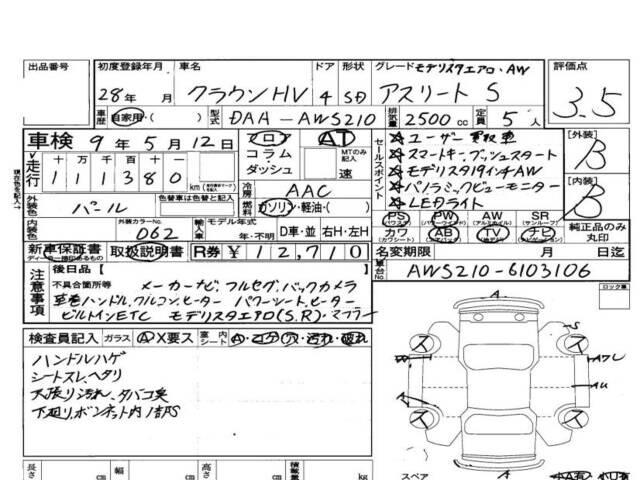 出品番号
初度登録年月
28年 月
車名
クラウンHV
ドア
4
形状
SD
グレード モデリスタエアロ・AW
アスリートS
評価点
3.5
車歴 自家用・( )
型式 DAA-AWS210
排気量 2500cc
定員 5人
車検 9年5月12日
走行 十万千百十一
111380 km
フロア
コラム
ダッシュ
AT
MTのみ記入
速
セールスポイント
☆ユーザー買取車
☆スマートキー、プッシュスタート
☆モデリスタ19インチAW
☆パノラミックビューモニター
☆LEDライト
[外装]
B
[内装]
B
外装色 パール
色替車は色替と記入
冷房 AAC
燃料 ガソリン・軽油・( )
内装色
外装カラーNo.
062
輸入車
モデル年式
年 D車・並 右H・左H
PS PW AW SR
カワ AB TV ナビ
純正品のみ丸印
新車保証書 取扱説明書 R券 ¥12,710
名変期限 月 日迄
車台No. AWS210-6103106
注意事項
後日品[ ]
不具合箇所等 メーカーナビ、フルセグ、バックカメラ
革巻ハンドル、クルコン、ヒーター パワーシート、ヒーター
ビルトインETC モデリスタエアロ(S.R)・マフラー
ロック車
検査員記入 ガラス A X要ス 室内 シート A・コゲ・穴・汚れ・破れ
ハンドルハゲ
シートスレ、ヘタリ
天張り汚れ、タバコ臭
下廻り、ボンネット内 1部S
A
S
ス
ス
W
A
AU
ス
ス
A
スペア
長さ cm 幅 cm 高さ cm 積載量 kg